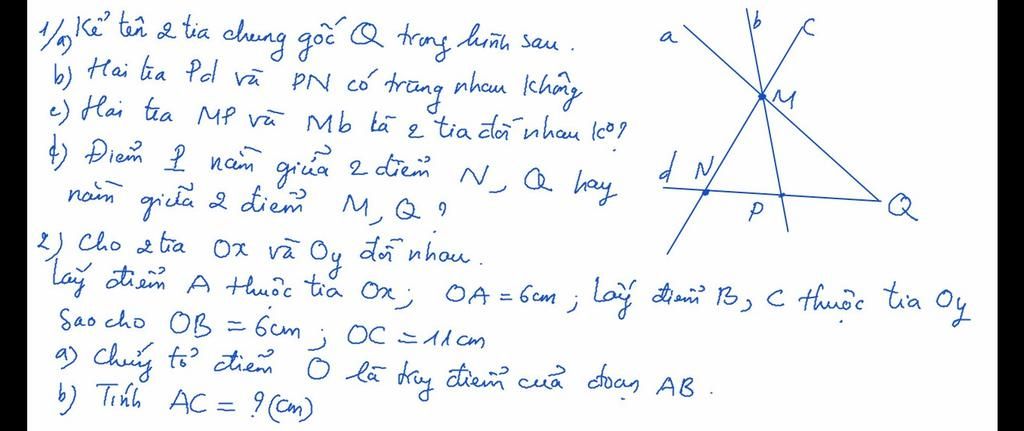 1/a) Kể tên 2 tia chung gốc Q trong hình sau.
b) Hai tia Pd và PN có trùng nhau không
c) Hai tia MP và Mb là 2 tia đối nhau ko?
d) Điểm P nằm giữa 2 điểm N, Q hay
nằm giữa 2 điểm M, Q ?
2) Cho 2 tia Ox và Oy đối nhau.
Lấy điểm A thuộc tia Ox; OA = 6cm; Lấy điểm B, C thuộc tia Oy
Sao cho OB = 6cm; OC = 11cm
a) Chứng tỏ điểm O là trug điểm của đoạn AB.
b) Tính AC = ? (cm)
a
b
C
M
d
N
P
Q